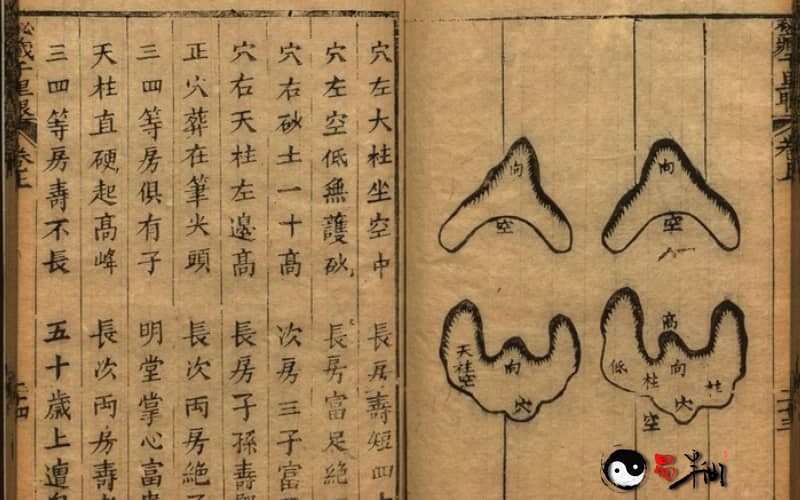 卷上
向
空
高
低
柱
向
柱
穴
空
向
空
天柱空
向
穴
穴左大柱坐空中 長房壽短四十
穴左空低無護砂 長房富足絶
穴右砂土一十高 次房三子富
穴右天柱左邊高 長房子孫壽
正穴葬在筆尖頭 長次両房絶子
三四等房俱有子 明堂掌心富貴
天柱直硬起高峰 長次両房壽
三四等房壽不長 五十歲上遭
藏千里眼 卷上 二十四
易